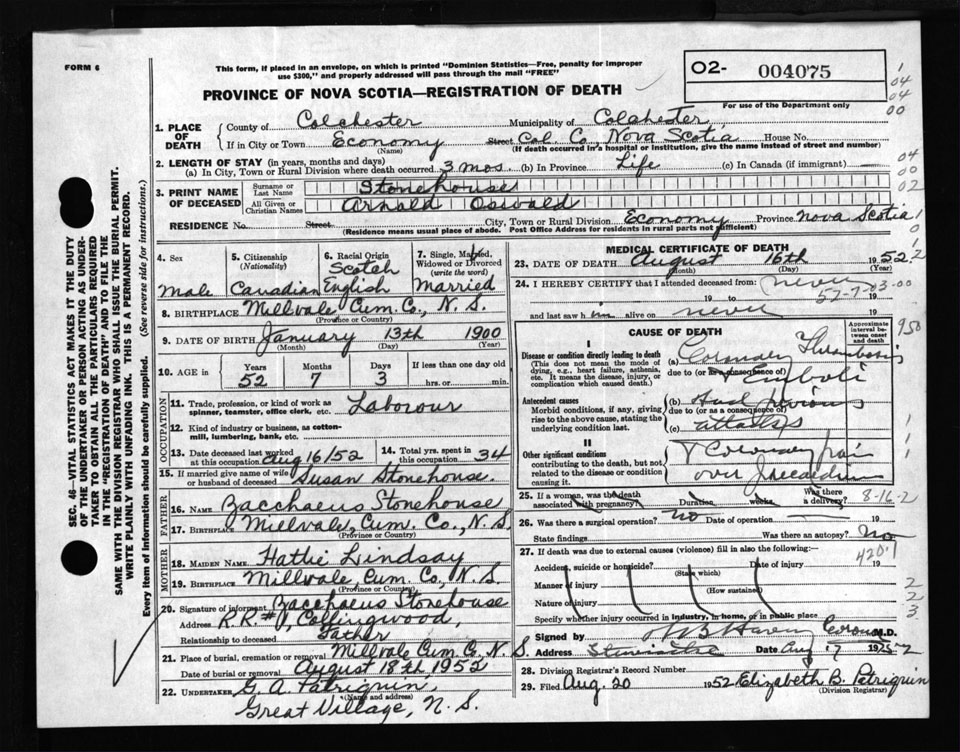 FORM 6
This form, if placed in an envelope, on which is printed "Dominion Statistics—Free, penalty for improper
use $300," and properly addressed will pass through the mail "FREE"
02- 004075
PROVINCE OF NOVA SCOTIA—REGISTRATION OF DEATH
For use of the Department only
04
04
00
1. PLACE OF DEATH
County of Colchester Municipality of Colchester
If in City or Town Economy Street Col. Co., Nova Scotia House No.
(Name) (If death occurred in a hospital or institution, give the name instead of street and number)
2. LENGTH OF STAY (in years, months and days)
(a) In City, Town or Rural Division where death occurred 3 mos. (b) In Province Life (c) In Canada (if immigrant) —
04
00
02
3. PRINT NAME OF DECEASED
Surname or Last Name Stonehouse
All Given or Christian Names Arnald Oswald
RESIDENCE No. Street City, Town or Rural Division Economy Province Nova Scotia
(Residence means usual place of abode. Post Office Address for residents in rural parts not sufficient)
4. Sex Male
5. Citizenship (Nationality) Canadian
6. Racial Origin Scotch English
7. Single, Married, Widowed or Divorced (write the word) Married
8. BIRTHPLACE Millvale, Cum. Co., N. S.
(Province or Country)
9. DATE OF BIRTH January 13th 1900
(Month) (Day) (Year)
10. AGE in Years 52 Months 7 Days 3 If less than one day old hrs. or min.
OCCUPATION
11. Trade, profession, or kind of work as spinner, teamster, office clerk, etc. Labourour
12. Kind of industry or business, as cotton-mill, lumbering, bank, etc.
13. Date deceased last worked at this occupation Aug 16/52
14. Total yrs. spent in this occupation 34
15. If married give name of wife or husband of deceased Susan Stonehouse.
FATHER
16. Name Zacchaeus Stonehouse
17. Birthplace Millvale, Cum. Co., N. S.
(Province or Country)
MOTHER
18. Maiden Name Hattie Lindsay
19. Birthplace Millvale, Cum. Co., N. S.
(Province or Country)
20. Signature of informant Zacchaeus Stonehouse
Address R.R.#1, Collingwood,
Relationship to deceased Father
21. Place of burial, cremation or removal Millvale Cum. Co. N. S.
Date of burial or removal August 18th 1952
22. Undertaker G. A. Patriquin,
(Name and address)
Great Village, N. S.
MEDICAL CERTIFICATE OF DEATH
23. DATE OF DEATH August 16th 1952
(Month) (Day) (Year)
24. I HEREBY CERTIFY that I attended deceased from: never
19 to 19
57-7-03-00
and last saw h im alive on never 19
CAUSE OF DEATH
Approximate interval between onset and death
950
I
Disease or condition directly leading to death
(This does not mean the mode of dying, e.g., heart failure, asthenia, etc. It means the disease, injury, or complication which caused death.)
(a) Coronary Thrombosis
due to (or as a consequence of)
Emboli
Antecedent causes
Morbid conditions, if any, giving rise to the above cause, stating the underlying condition last.
(b) Had previous
due to (or as a consequence of)
(c) attacks
II
Other significant conditions
contributing to the death, but not related to the disease or condition causing it.
Coronary pain
over
25. If a woman, was the death associated with pregnancy? Duration weeks. Was there a delivery? 8-16-2
26. Was there a surgical operation? no Date of operation — 19
State findings Was there an autopsy? No
420.1
27. If death was due to external causes (violence) fill in also the following:—
Accident, suicide or homicide? Date of injury 19
(State which)
Manner of injury
(How sustained)
Nature of injury
Specify whether injury occurred in industry, in home, or in public place
2
2
3
Signed by M.D.
Address Date Aug 17 1952
28. Division Registrar's Record Number
29. Filed Aug. 20 1952 Elizabeth B. Patriquin
(Division Registrar)
SEC. 46—VITAL STATISTICS ACT MAKES IT THE DUTY
OF THE UNDERTAKER OR PERSON ACTING AS UNDER-
TAKER TO OBTAIN ALL THE PARTICULARS REQUIRED
IN THE "REGISTRATION OF DEATH" AND TO FILE THE
SAME WITH THE DIVISION REGISTRAR WHO SHALL ISSUE THE BURIAL PERMIT.
WRITE PLAINLY WITH UNFADING INK. THIS IS A PERMANENT RECORD.
Every item of information should be carefully supplied. (See reverse side for instructions.)